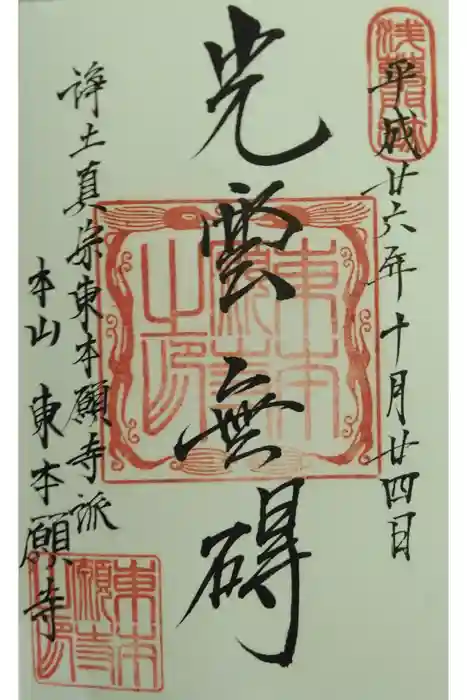 平成廿六年十月廿四日
光雲無碍
浄土真宗東本願寺派
本山 東本願寺
東本願寺之印
東本願寺印